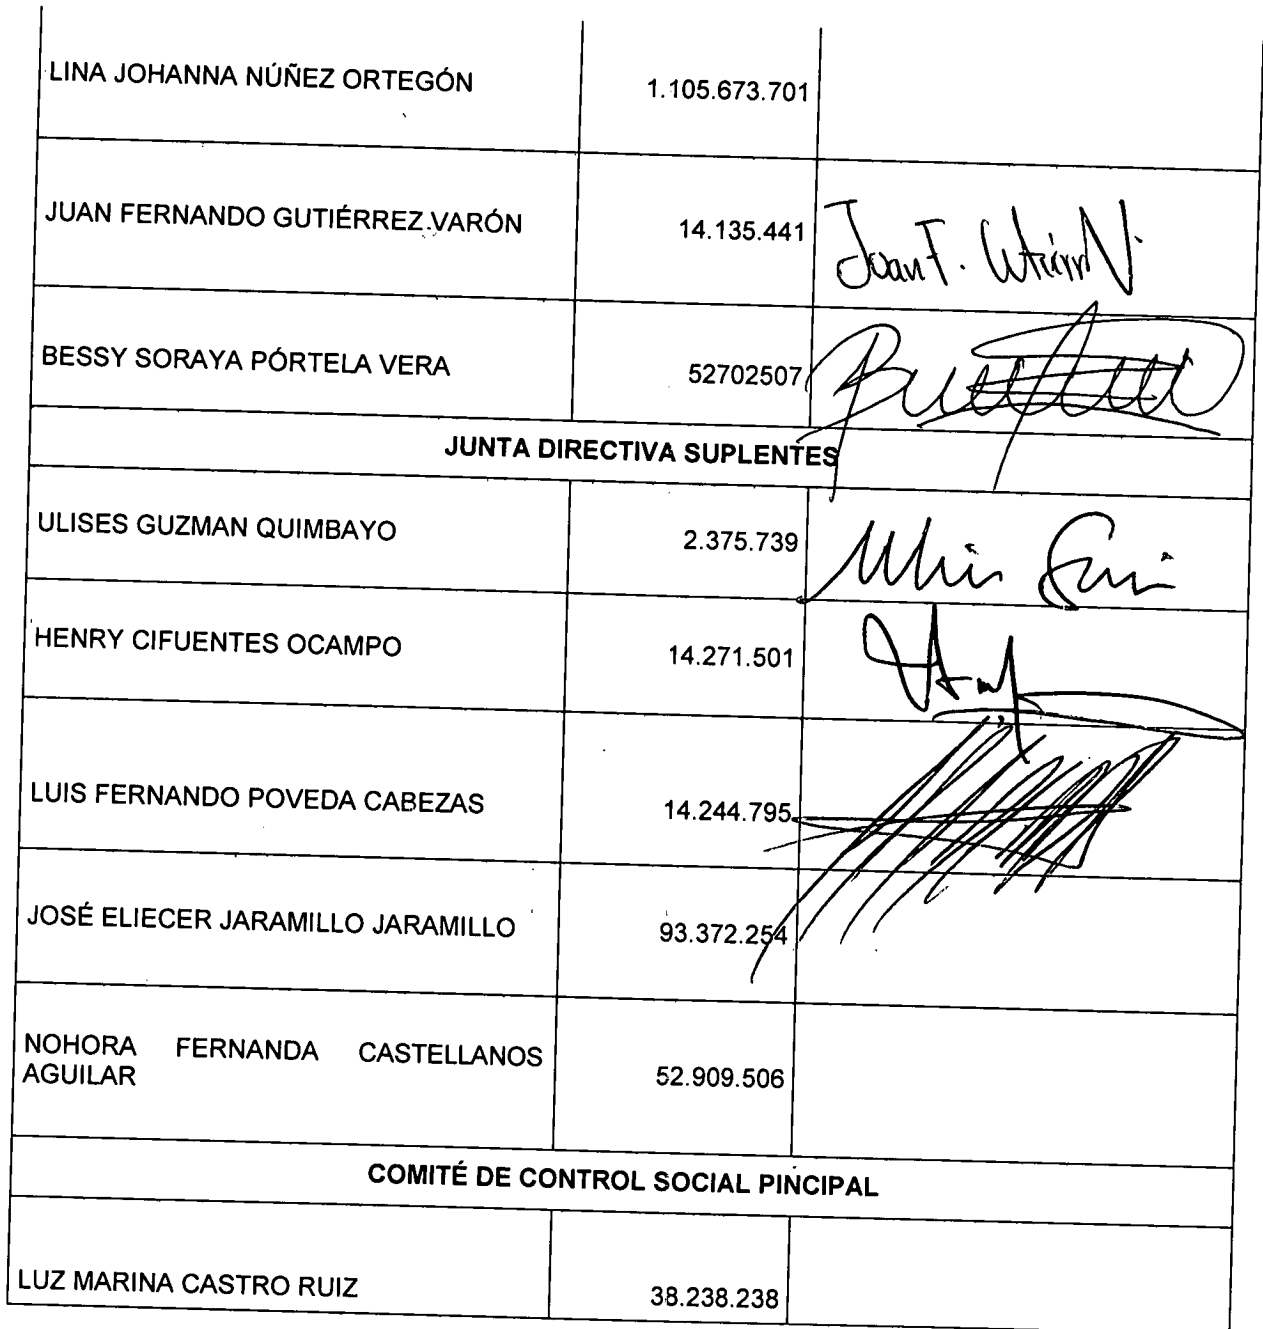 LINA JOHANNA NÚÑEZ ORTEGÓN 1.105.673.701
JUAN FERNANDO GUTIÉRREZ VARÓN 14.135.441 Juan F.
BESSY SORAYA PÓRTELA VERA 52702507
JUNTA DIRECTIVA SUPLENTES
ULISES GUZMAN QUIMBAYO 2.375.739
HENRY CIFUENTES OCAMPO 14.271.501
LUIS FERNANDO POVEDA CABEZAS 14.244.795
JOSÉ ELIECER JARAMILLO JARAMILLO 93.372.254
NOHORA FERNANDA CASTELLANOS
AGUILAR 52.909.506
COMITÉ DE CONTROL SOCIAL PINCIPAL
LUZ MARINA CASTRO RUIZ 38.238.238